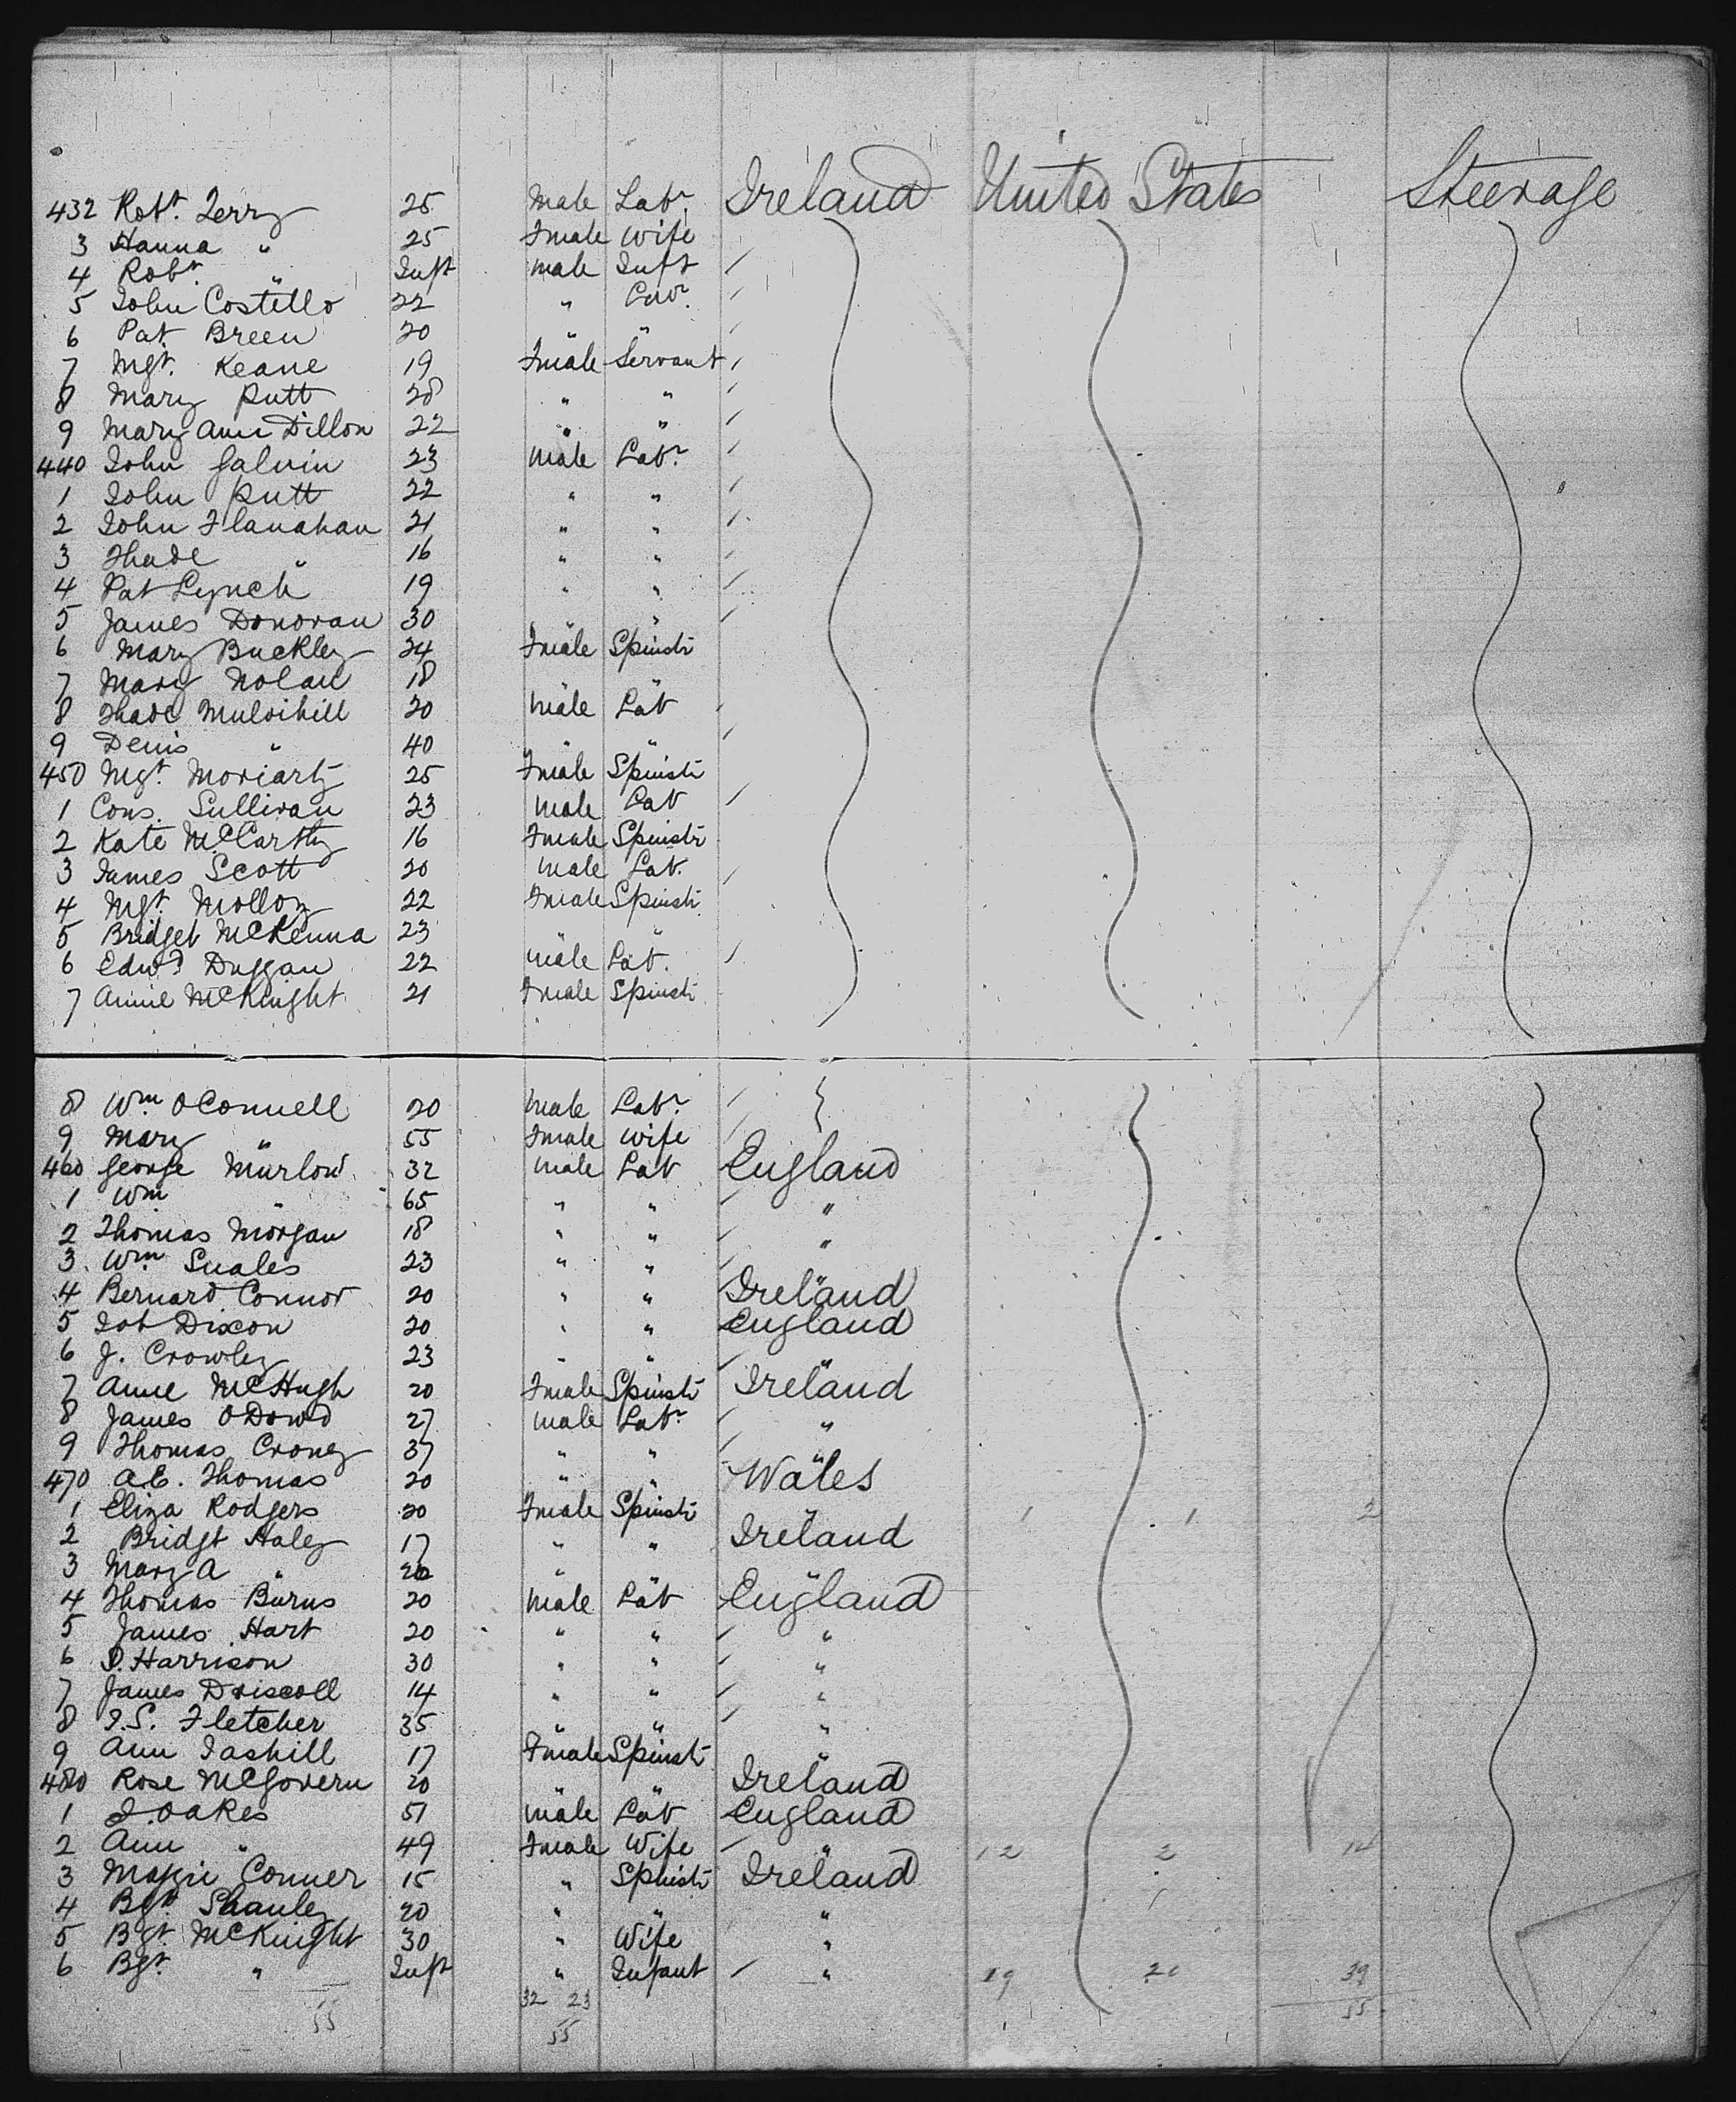 432 Robt. Terry 25 Male Labr. Ireland United States Steerage
3 Hanna " 25 Fmale Wife
4 Robt. " Inft male Inft
5 John Costello 22 " Labr.
6 Pat Breen 20 " "
7 Mgt. Keane 19 Fmale Servant
8 Mary Putt 28 " "
9 Mary Ann Dillon 22 " "
440 John Galvin 23 male Labr.
1 John Putt 22 " "
2 John Flanahan 21 " "
3 Thade " 16 " "
4 Pat Lynch 19 " "
5 James Donovan 30 " "
6 Mary Buckley 24 Fmale Spinstr
7 Mary Nolan 18 " "
8 Thade Mulvihill 20 male Lab
9 Denis " 40 " "
450 Mgt. Moriarty 25 Fmale Spinstr
1 Cons. Sullivan 23 male Lab
2 Kate McCarthy 16 Fmale Spinstr
3 James Scott 20 male Lab.
4 Mgt. Molloy 22 Fmale Spinstr
5 Bridget McKenna 23 " "
6 Edwd. Duggan 22 male Lab.
7 Annie McKnight 21 Fmale Spinstr
8 Wm. OConnell 20 male Labr.
9 Mary " 55 Fmale Wife
460 George Murlow 32 male Lab England
1 Wm " 65 " " "
2 Thomas Morgan 18 " " "
3 Wm. Suales 23 " " "
4 Bernard Connor 20 " " Ireland
5 Job Dixon 20 " " England
6 J. Crowley 23 " " "
7 Anne McHugh 20 Fmale Spinstr Ireland
8 James ODowd 27 male Labr "
9 Thomas Croney 37 " " "
470 A.E. Thomas 20 " " Wales
1 Eliza Rodgers 20 Fmale Spinstr " 1 1 2
2 Bridgt Haley 17 " " Ireland
3 Mary A " 20 " " "
4 Thomas Burns 20 male Lab England
5 James Hart 20 " " "
6 S. Harrison 30 " " "
7 James Driscoll 14 " " "
8 J.S. Fletcher 35 " " "
9 Ann Tashill 17 Fmale Spinstr "
480 Rose McGovern 20 " " Ireland
1 J. Oakes 51 male Lab England
2 Ann " 49 Fmale Wife " 12 2 14
3 Maggie Conner 15 " Spinstr Ireland
4 Bgt. Shanley 20 " " "
5 Bgt. McKnight 30 " Wife "
6 Bgt. " Inft " Infant " 19 20 39
55 32 23 55
55